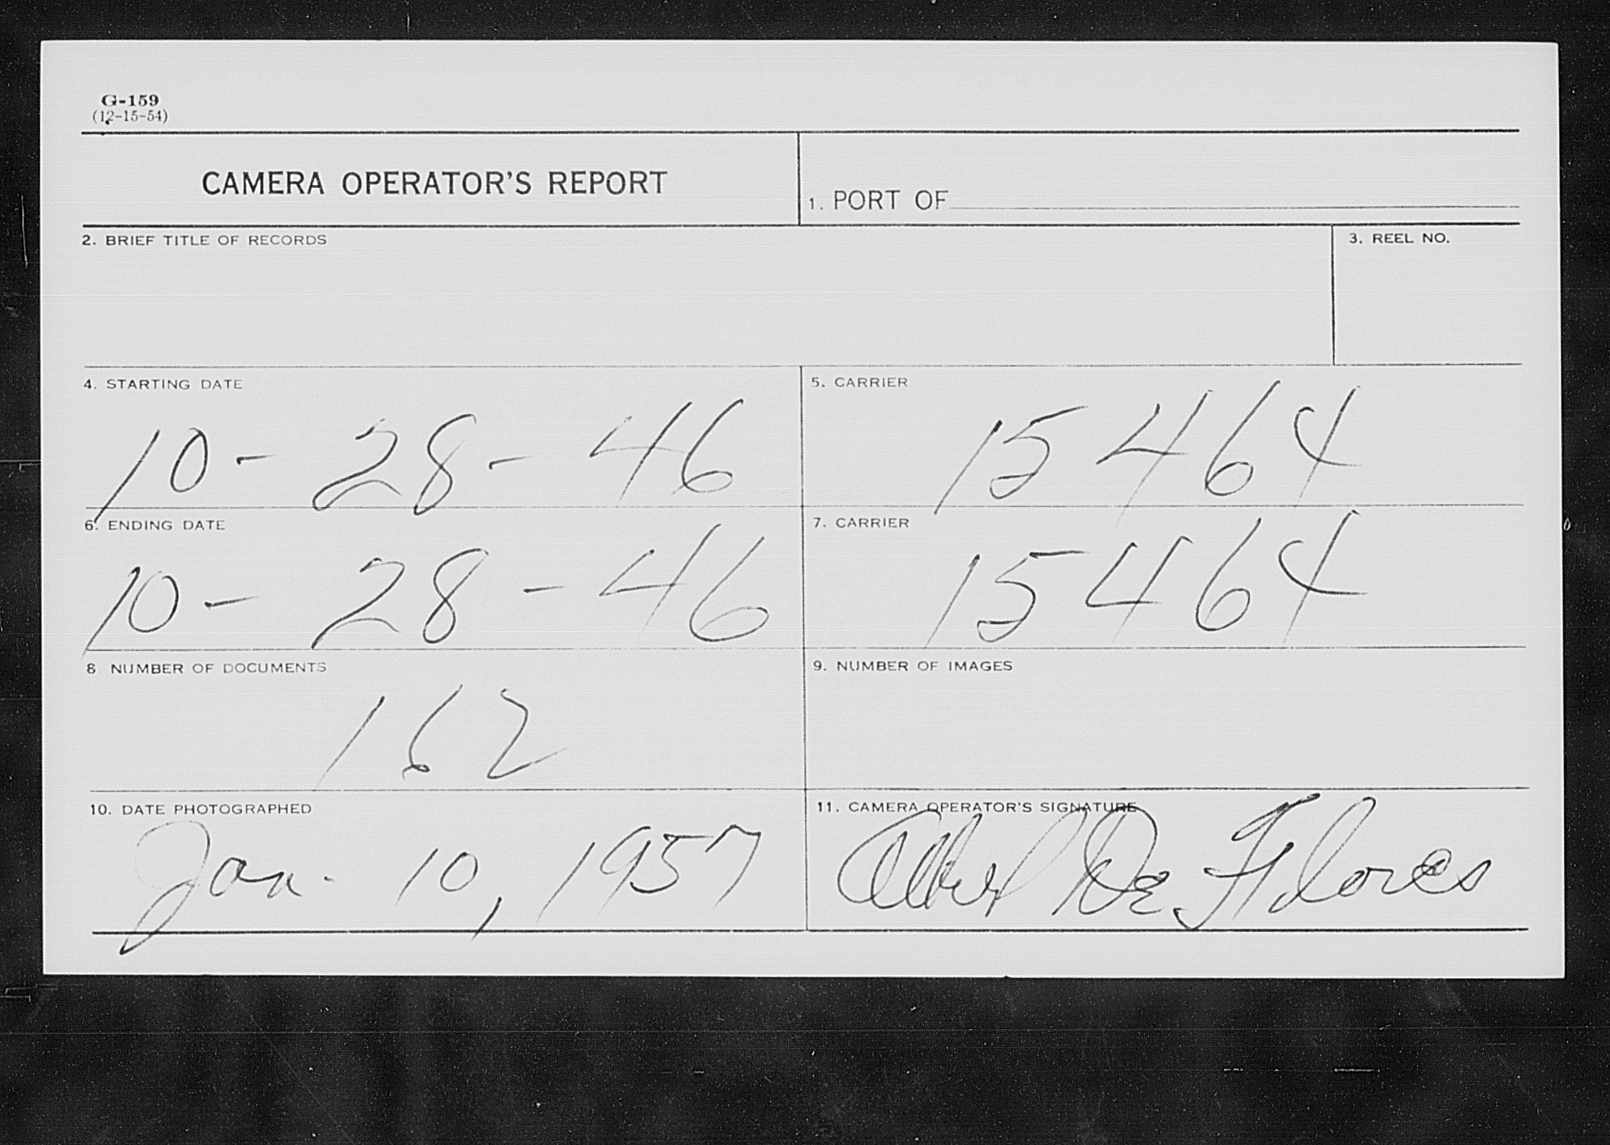 G-159
(12-15-54)
CAMERA OPERATOR'S REPORT
1. PORT OF
2. BRIEF TITLE OF RECORDS
3. REEL NO.
4. STARTING DATE
10-28-46
5. CARRIER
15464
6. ENDING DATE
10-28-46
7. CARRIER
15464
8 NUMBER OF DOCUMENTS
162
9. NUMBER OF IMAGES
10. DATE PHOTOGRAPHED
Jan. 10, 1957
11. CAMERA OPERATOR'S SIGNATURE
De Flores